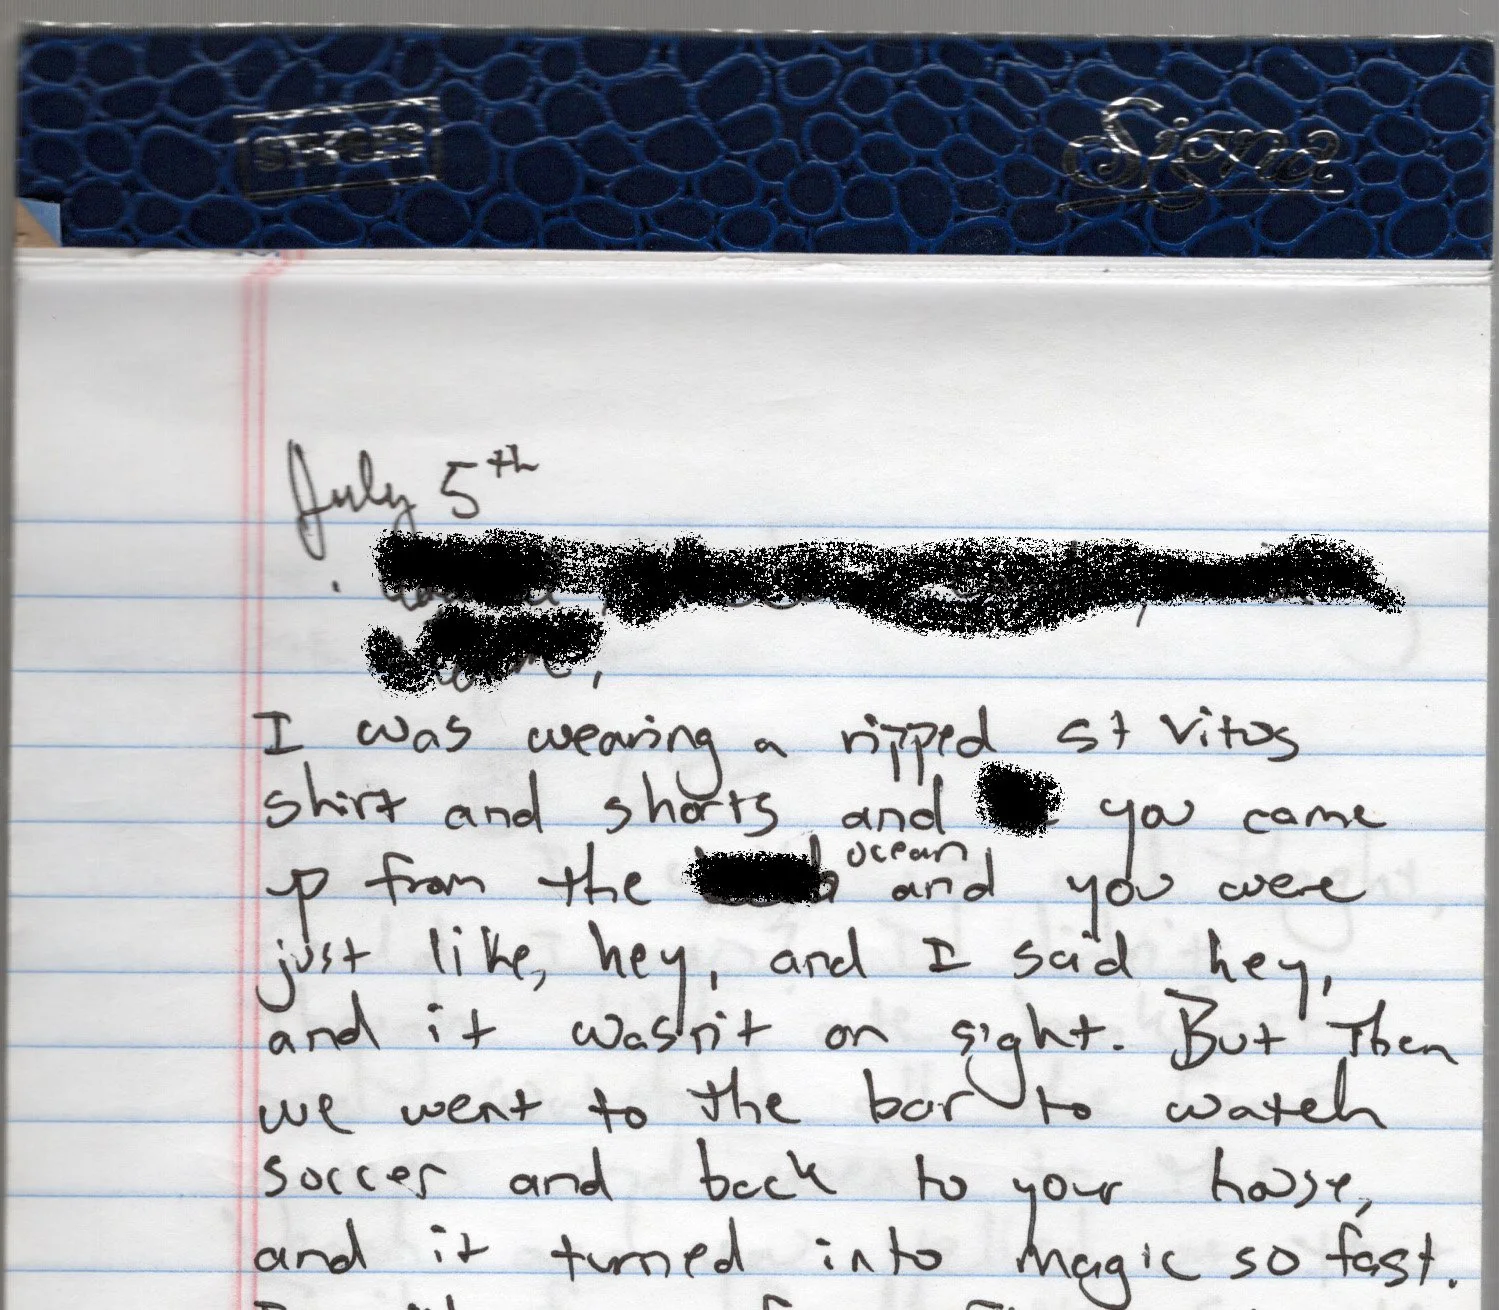 Signa
July 5th
I was wearing a ripped st vitus
shirt and shorts and you came
up from the ocean and you were
just like, hey, and I said hey,
and it wasn't on sight. But then
we went to the bar to watch
soccer and back to your house,
and it turned into magic so fast.